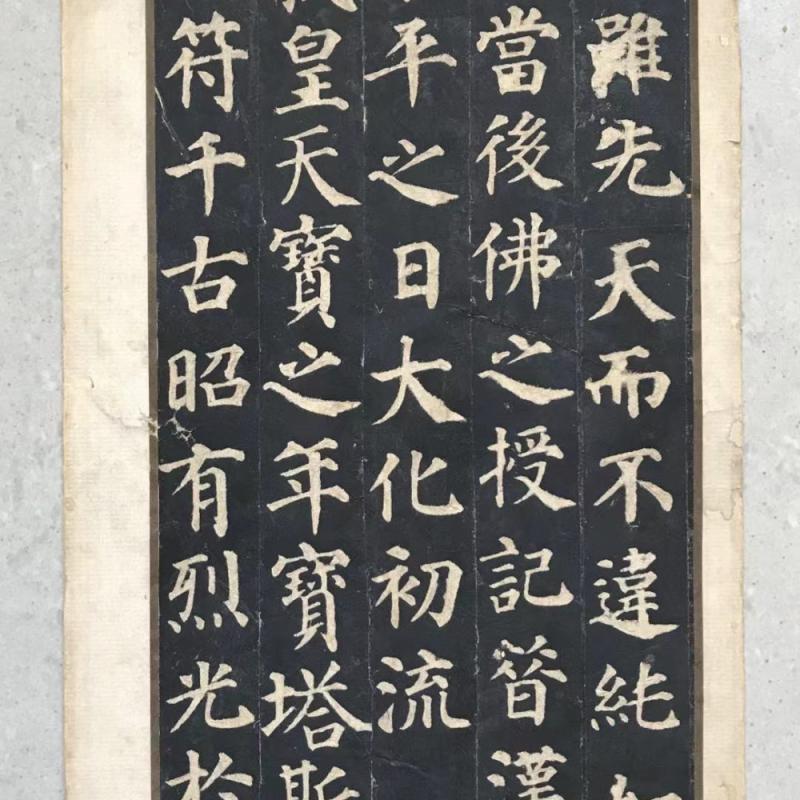 雖先天而不違純
當後佛之授記昔漢
平之日大化初流
我皇天寶之年寶塔斯
符千古昭有烈光於